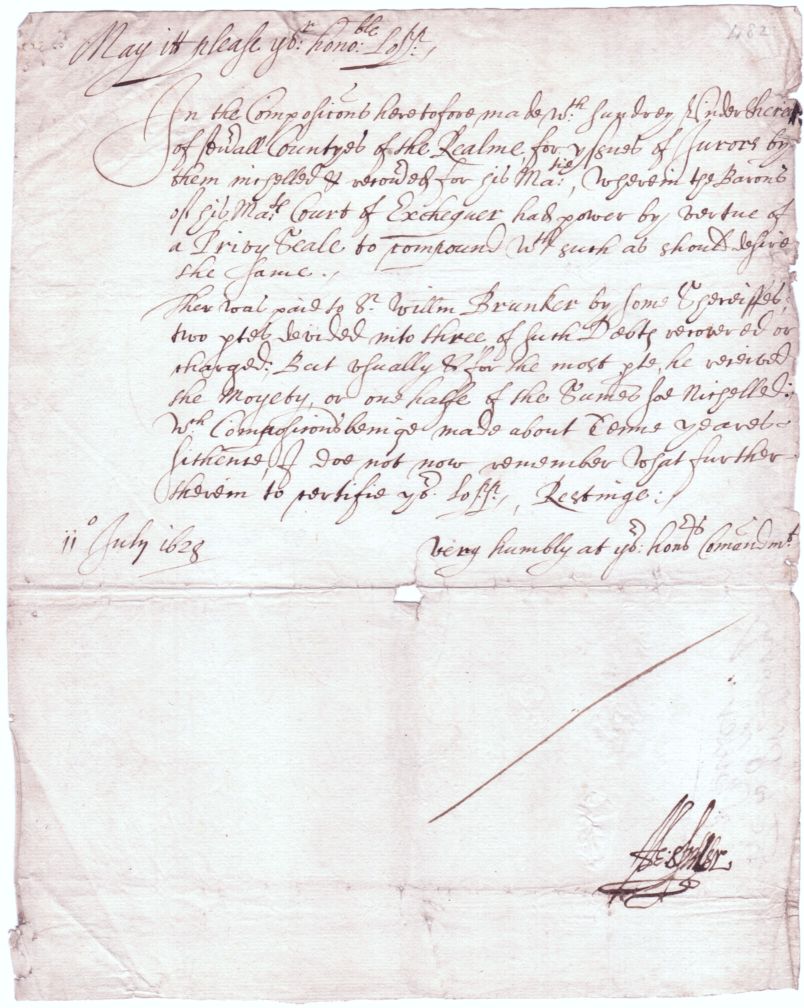 May itt please yor: honoble: Lopp:,
In the Composicons heretofore made wth: sundrey Undersheres
of sevrall Countyes of the Realme, for yssues of Jurors by
them nichelled & recovred for his Matie:, Wherein the Barons
of his Mats: Court of Exchequer had power by vertue of
a Privy Seale to compound wth such as should desire
the same.,
Ther was paid to Sr. Willm Brunker by some Shereiffes,
two ptes devided into three of such Debts recovered or
charged; But usually & for the most pte, he received
the Moyety, or one halfe of the Sumes soe Nichelled:
Wch Composicons beinge made about Tenne yeares
sithence, I doe not now remember what further
therein to certifie yor. Lopp:, Restinge:
11o July 1628
Very humbly at yor: honors Comandmt.